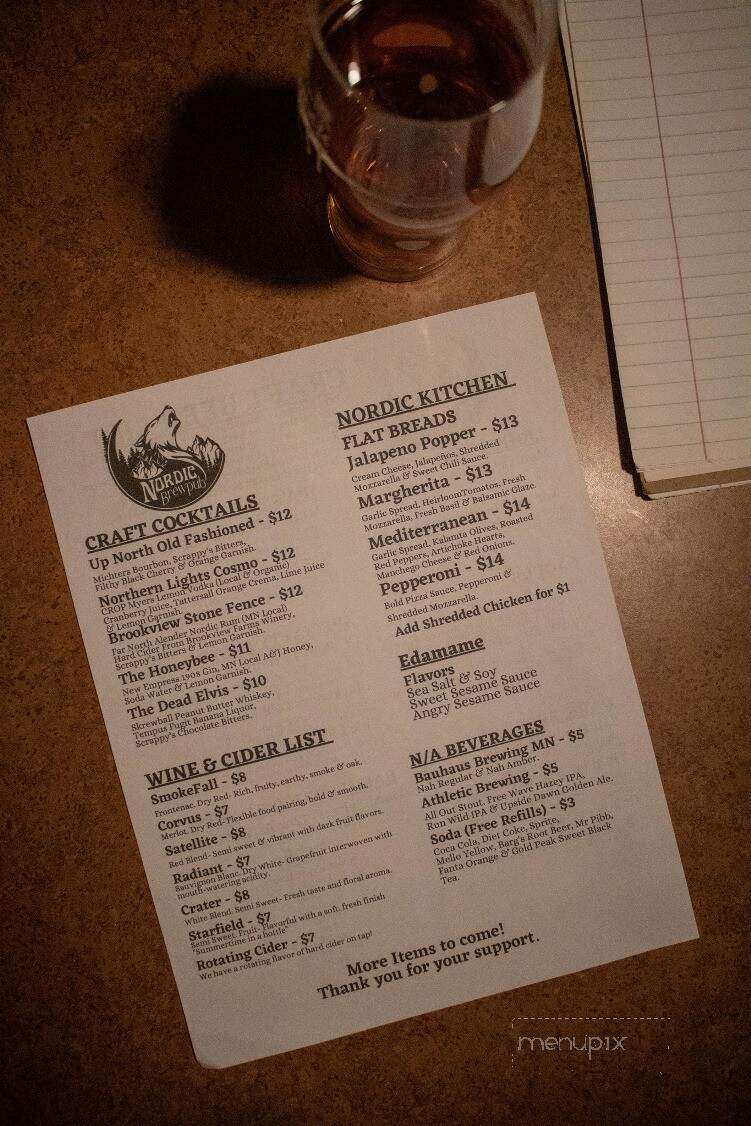 NORDIC
Brewpub
CRAFT COCKTAILS
Up North Old Fashioned - $12
Michters Bourbon, Scrappy's Bitters,
Filthy Black Cherry & Orange Garnish.
Northern Lights Cosmo - $12
CROP Myers Lemon Vodka (Local & Organic)
Cranberry Juice, Tattersall Orange Crema, Lime Juice
& Lemon Garnish.
Brookview Stone Fence - $12
Far North Alender Nordic Rum (MN Local)
Hard Cider From Brookview Farms Winery,
Scrappy's Bitters & Lemon Garnish.
The Honeybee - $11
New Empress 1908 Gin, MN Local A&J Honey,
Soda Water & Lemon Garnish.
The Dead Elvis - $10
Skrewball Peanut Butter Whiskey,
Tempus Fugit Banana Liquor,
Scrappy's Chocolate Bitters.
WINE & CIDER LIST
SmokeFall - $8
Frontenac. Dry Red- Rich, fruity, earthy, smoke & oak.
Corvus - $7
Merlot. Dry Red- Flexible food pairing, bold & smooth.
Satellite - $8
Red Blend- Semi sweet & vibrant with dark fruit flavors.
Radiant - $7
Sauvignon Blanc. Dry White- Grapefruit interwoven with
mouth-watering acidity.
Crater - $8
White Blend. Semi Sweet- Fresh taste and floral aroma.
Starfield - $7
Semi Sweet. Fruit- Flavorful with a soft, fresh finish
"Summertime in a bottle"
Rotating Cider - $7
We have a rotating flavor of hard cider on tap!
NORDIC KITCHEN
FLAT BREADS
Jalapeno Popper - $13
Cream Cheese, Jalapeños, Shredded
Mozzarella & Sweet Chili Sauce.
Margherita - $13
Garlic Spread, HeirloomTomatos, Fresh
Mozzarella, Fresh Basil & Balsamic Glaze.
Mediterranean - $14
Garlic Spread, Kalamta Olives, Roasted
Red Peppers, Artichoke Hearts,
Manchego Cheese & Red Onions.
Pepperoni - $14
Bold Pizza Sauce, Pepperoni &
Shredded Mozzarella.
Add Shredded Chicken for $1
Edamame
Flavors
Sea Salt & Soy
Sweet Sesame Sauce
Angry Sesame Sauce
N/A BEVERAGES
Bauhaus Brewing MN - $5
Nah Regular & Nah Amber.
Athletic Brewing - $5
All Out Stout, Free Wave Hazey IPA,
Run Wild IPA & Upside Dawn Golden Ale.
Soda (Free Refills) - $3
Coca Cola, Diet Coke, Sprite,
Mello Yellow, Barg's Root Beer, Mr Pibb,
Fanta Orange & Gold Peak Sweet Black
Tea.
More Items to come!
Thank you for your support.
menupix